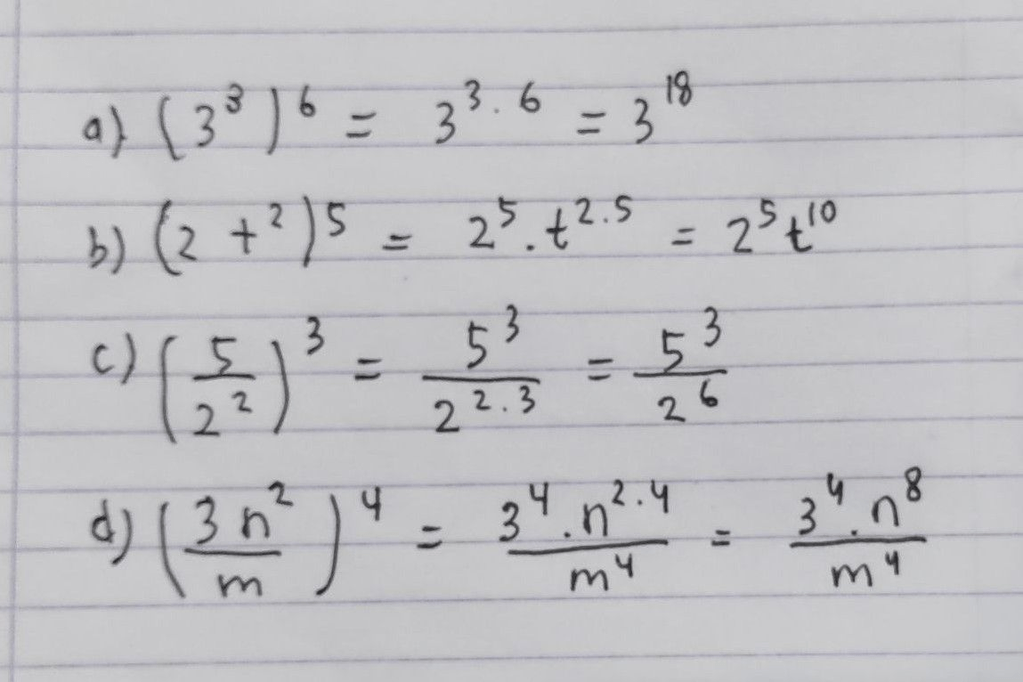 a) (3³)⁶ = 3³·⁶ = 3¹⁸
b) (2 t²)⁵ = 2⁵.t²·⁵ = 2⁵t¹⁰
c) (5/2²)³ = 5³/2²·³ = 5³/2⁶
d) (3n²/m)⁴ = 3⁴.n²·⁴/m⁴ = 3⁴.n⁸/m⁴